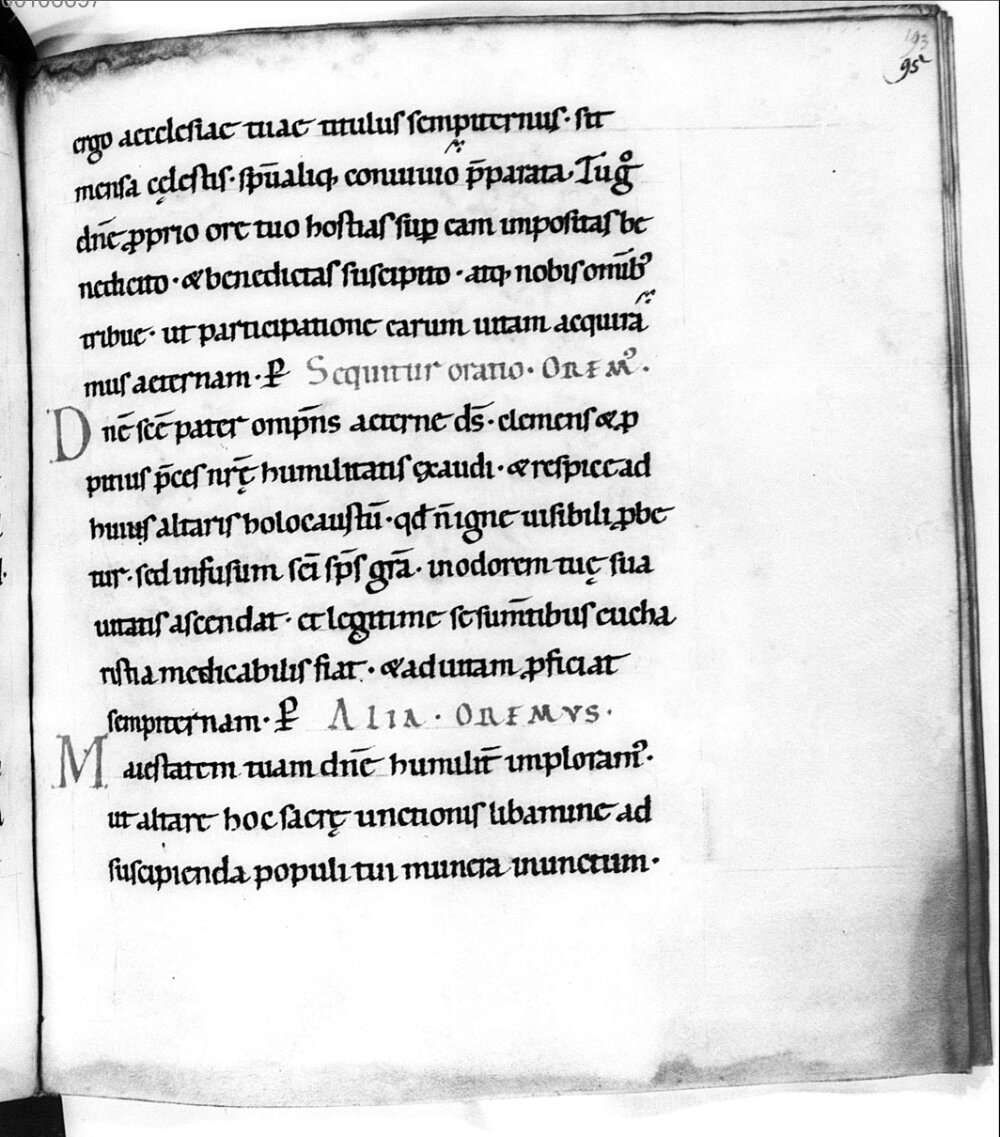 193
95
ergo aecclesiae tuae titulus sempiternus· sit
mensa cęlestis· sp̄ualiq; conuiuio p̄parata. Tu g̊
dn̄e ꝓprio ore tuo hostias suꝑ eam impositas be
nedicito· & benedictas suscipito· atq; nobis omīb;
tribue· ut participatione earum uitam acquira
mus aeternam· P̱ Sequitur oratio· OREM᾽·
Dn̄e sc̄e pater omp̄ns aeterne ds̄· clemens & ꝓ
pitius p̄ces nr̄ę humilitatis exaudi· & respice ad
huius altaris holocaustū· qđ n̄ igne uisibili ꝓbe
tur· sed infusum sc̄i sp̄s gr̄a· in odorem tuę sua
uitatis ascendat· et legitime se sum̄tibus eucha
ristia medicabilis fiat· & ad uitam ꝓficiat
sempiternam· P̱ ALIA· OREMVS·
Maiestatem tuam dn̄e humilit̄ imploram᾽·
ut altare hoc sacrę unctionis libamine ad
suscipienda populi tui munera inunctum·